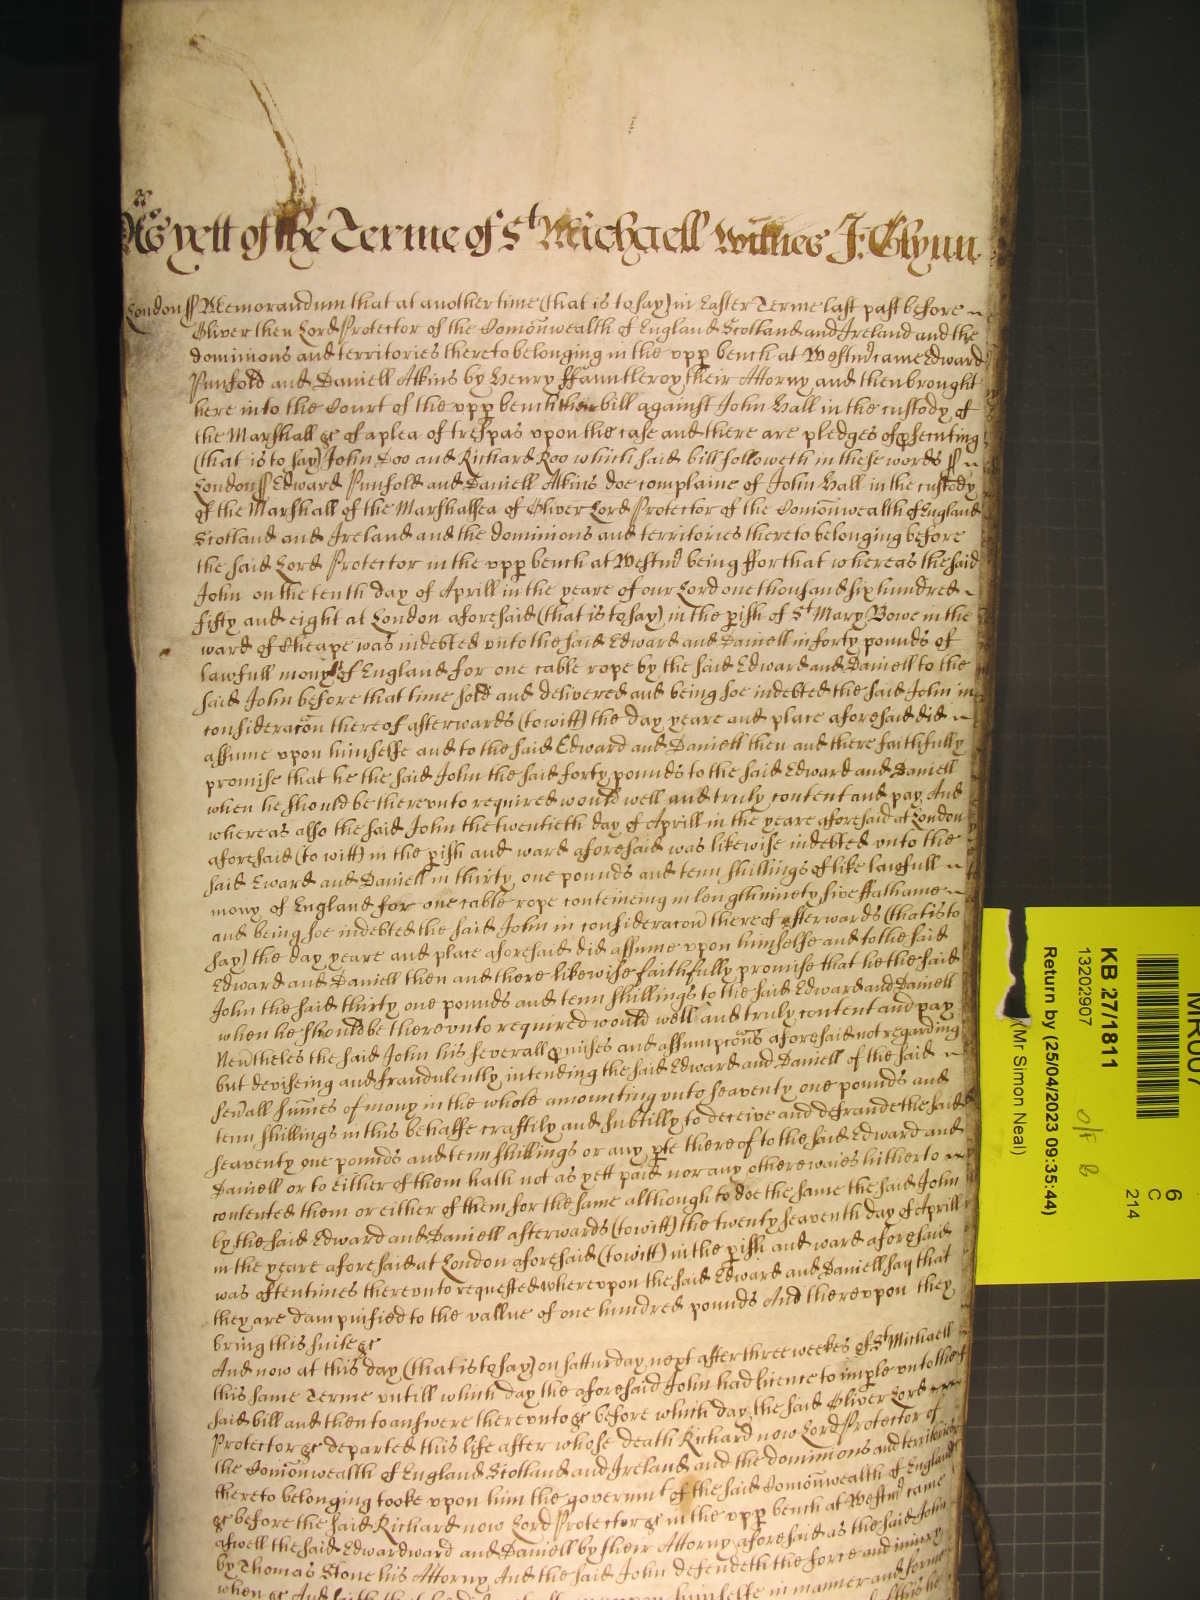 As yett of the Terme of St Michaell Witnes J: Glynn
London ss Memorandum that at another time (that is to say) in Easter Terme last past before
Oliver then Lord Protector of the Comonwealth of England Scotland and Ireland and the
dominions and territories thereto belonging in the upp bench at Westmr came Edward
Punfold and Daniell Atkins by Henry ffauntleroy their Attorny and then brought
here into the Court of the upp bench their bill against John Hall in the custody of
the Marshall &c of a plea of trespas upon the case and there are pledges of psecuting
(that is to say) John Doo and Richard Roo which said bill followeth in these words ss
London ss Edward Punfold and Daniell Atkins doe complaine of John Hall in the custody
of the Marshall of the Marshalsea of Oliver Lord Protector of the Comonwealth of England
Scotland and Ireland and the dominions and territories thereto belonging before
the said Lord Protector in the upp bench at Westmr being ffor that whereas the said
John on the tenth day of Aprill in the yeare of our Lord one thousand six hundred
fifty and eight at London aforesaid (that is to say) in the pish of St Mary Bowe in the
ward of Cheape was indebted unto the said Edward and Daniell in forty pounds of
lawfull mony of England for one cable rope by the said Edward and Daniell to the
said John before that time sold and delivered and being soe indebted the said John in
consideracon thereof afterwards (to witt) the day yeare and place aforesaid did
assume upon himselfe and to the said Edward and Daniell then and there faithfully
promise that he the said John the said forty pounds to the said Edward and Daniell
when he should be thereunto required would well and truly content and pay And
whereas also the said John the twentieth day of Aprill in the yeare aforesaid at London
aforesaid (to witt) in the pish and ward aforesaid was likewise indebted unto the
said Eward and Daniell in thirty one pounds and tenn shillings of like lawfull
mony of England for one cable rope conteineing in length ninety five ffathame
and being soe indebted the said John in consideracon thereof afterwards (that is to
say) the day yeare and place aforesaid did assume upon himselfe and to the said
Edward and Daniell then and there likewise faithfully promise that he the said
John the said thirty one pounds and tenn shillings to the said Edward and Daniell
when he should be thereunto required would well and truly content and pay
Nevtheles the said John his severall pmises and assumpcons aforesaid not regarding
but deviseing and fraudulently intending the said Edward and Daniell of the said
sevall summes of mony in the whole amounting unto seaventy one pounds and
tenn shillings in this behalfe craftily and subtilly to deceive and defraude the said
seaventy one pounds and tenn shillings or any pte thereof to the said Edward and
Daniell or to either of them hath not as yett paid nor any otherwaies hitherto
contented them or either of them for the same although to doe the same the said John
by the said Edward and Daniell afterwards (to witt) the twenty seaventh day of Aprill
in the yeare aforesaid at London aforesaid (to witt) in the pish and ward aforesaid
was oftentimes thereunto requested whereupon the said Edward and Daniell say that
they are dampnified to the vallue of one hundred pounds And thereupon they
bring this suite &c
And now at this day (that is to say) on satturday next after three weekes of St Michaell
this same Terme untill which day the aforesaid John had licence to imple unto the
said bill and then to answere thereunto &c before which day the said Oliver Lord
Protector &c departed this life after whose death Richard now Lord Protector of
the Comonwealth of England Scotland and Ireland and the dominions and territories
thereto belonging tooke upon him the governmt of the said Comonwealth of England
&c before the said Richard now Lord Protector &c in the upp bench at Westmr came
aswell the said Edwardward and Daniell by their Attorny aforesaid as the said John
by Thomas Stone his Attorny And the said John defendeth the force and iniury
when &c And saith that himselfe in manner and forme
MR007
6
C
214
KB 27/1811
13202907
Return by (25/04/2023 09:35:44)
(Mr Simon Neal)